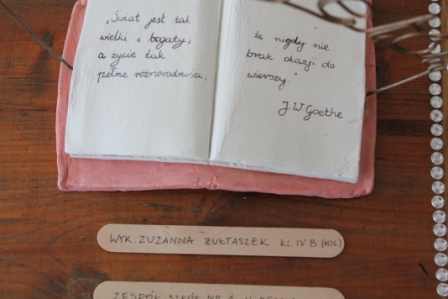 „Świat jest tak
wielki i bogaty,
a życie tak
pełne różnorodności,
że nigdy nie
brak okazji do
wierszy."
J W Goethe
WYK. ZUZANNA ŻUŁTASZEK KL. IV B (
ZESPÓŁ SZKÓŁ NR 1